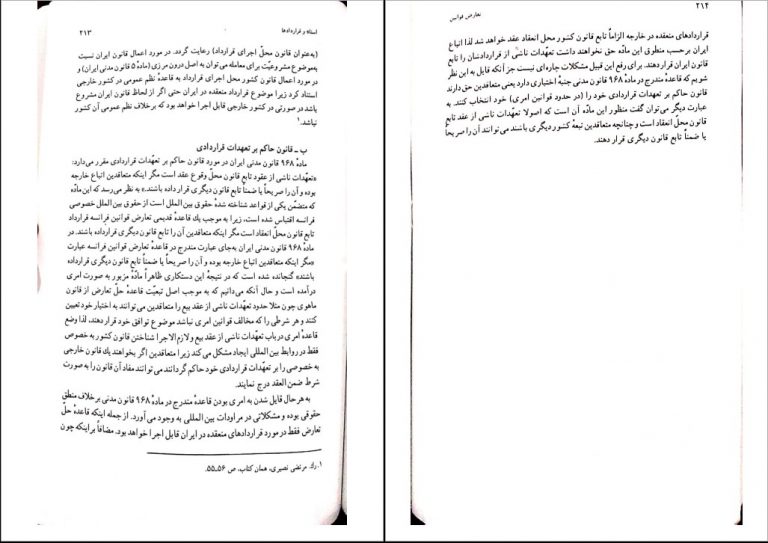 اسناد و قراردادها
۲۱۳
(به‌عنوان قانون محلّ اجرای قرارداد) رعایت گردد. در مورد اعمال قانون ایران نسبت
به‌موضوع مشروعیّت برای معامله می‌توان به اصل درون مرزی (مادهٔ ۵ قانون مدنی ایران) و
در مورد اعمال قانون کشور محل اجرای قرارداد به قاعدهٔ نظم عمومی در کشور خارجی
استناد کرد زیرا موضوع قرارداد منعقده در ایران حتی اگر از لحاظ قانون ایران مشروع
باشد در صورتی در کشور خارجی قابل اجرا خواهد بود که برخلاف نظم عمومی آن کشور
نباشد.۱
ب ـ قانون حاکم بر تعهدات قراردادی
مادهٔ ۹۶۸ قانون مدنی ایران در مورد قانون حاکم بر تعهّدات قراردادی مقرر می‌دارد:
«تعهّدات ناشی از عقود تابع قانون محلّ وقوع عقد است مگر اینکه متعاقدین اتباع خارجه
بوده و آن را صریحاً یا ضمناً تابع قانون دیگری قرار داده باشند.» به نظر می‌رسد که این مادّه
که متضمّن یکی از قواعد شناخته شدهٔ حقوق بین الملل است از حقوق بین الملل خصوصی
فرانسه اقتباس شده است، زیرا به موجب یك قاعدهٔ قدیمی تعارض قوانین فرانسه قرارداد
تابع قانون محلّ انعقاد است مگر اینکه متعاقدین آن را تابع قانون دیگری قرارداده باشند. در
مادهٔ ۹۶۸ قانون مدنی ایران به‌جای عبارت مندرج در قاعدهٔ تعارض قوانین فرانسه عبارت
«مگر اینکه متعاقدین اتباع خارجه بوده و آن را صریحاً یا ضمناً تابع قانون دیگری قرارداده
باشند» گنجانده شده است که در نتیجهٔ این دستکاری ظاهراً مادّهٔ مزبور به صورت امری
درآمده است و حال آنکه می‌دانیم که به موجب اصل تبعیّت قاعدهٔ حلّ تعارض از قانون
ماهوی چون مثلا حدود تعهّدات ناشی از عقد بیع را متعاقدین می‌توانند به اختیار خود تعیین
کنند و هر شرطی را که مخالف قوانین امری نباشد موضوع توافق خود قرار دهند، لذا وضع
قاعدهٔ امری درباب تعهّدات ناشی از عقد بیع و لازم الاجرا شناختن قانون کشور به خصوص
فقط در روابط بین المللی ایجاد مشکل می‌کند زیرا متعاقدین اگر بخواهند یك قانون خارجی
به خصوصی را بر تعهّدات قراردادی خود حاکم گردانند می‌توانند مفاد آن قانون را به‌صورت
شرط ضمن العقد درج نمایند.
به هر حال قایل شدن به امری بودن قاعدهٔ مندرج در مادهٔ ۹۶۸ قانون مدنی برخلاف منطق
حقوقی بوده و مشکلاتی در مراودات بین المللی به وجود می آورد. از جمله اینکه قاعدهٔ حلّ
تعارض فقط در مورد قراردادهای منعقده در ایران قابل اجرا خواهد بود. مضافاً بر اینکه چون
۱. رك. مرتضی نصیری، همان کتاب، ص ۵۶ـ۵۵.
تعارض قوانین
۲۱۴
قراردادهای منعقده در خارجه الزاماً تابع قانون کشور محل انعقاد عقد خواهد شد لذا اتباع
ایران برحسب منطوق این مادّه حق نخواهند داشت تعهّدات ناشی از قراردادشان را تابع
قانون ایران قرار دهند. برای رفع این قبیل مشکلات چاره‌ای نیست جز آنکه قایل به این نظر
شویم که قاعدهٔ مندرج در مادهٔ ۹۶۸ قانون مدنی جنبهٔ اختیاری دارد یعنی متعاقدین حق دارند
قانون حاکم بر تعهدات قراردادی خود را (در حدود قوانین امری) خود انتخاب کنند. به
عبارت دیگر می‌توان گفت منظور این مادّه آن است که اصولا تعهّدات ناشی از عقد تابع
قانون محلّ انعقاد است و چنانچه متعاقدین تبعهٔ کشور دیگری باشند می‌توانند آن را صریحاً
یا ضمناً تابع قانون دیگری قرار دهند.